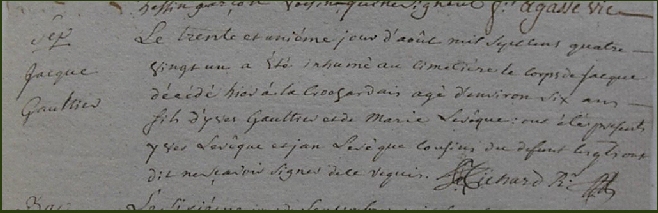 f. agasse Vic
Sep Le trente et unième jour d'aôut mil sept cens quatre
Jacque vingt un a été inhumé au cimetière le corps de Jacque
Gaultier décédé hier à la agé d'environ six ans
fils d'yves Gaultier et de Marie Levêque ; ont été présents
yves Levêque et jan Levêque cousins du defunt lesquels ont
dit ne sçavoir signer de ce requis. Richard